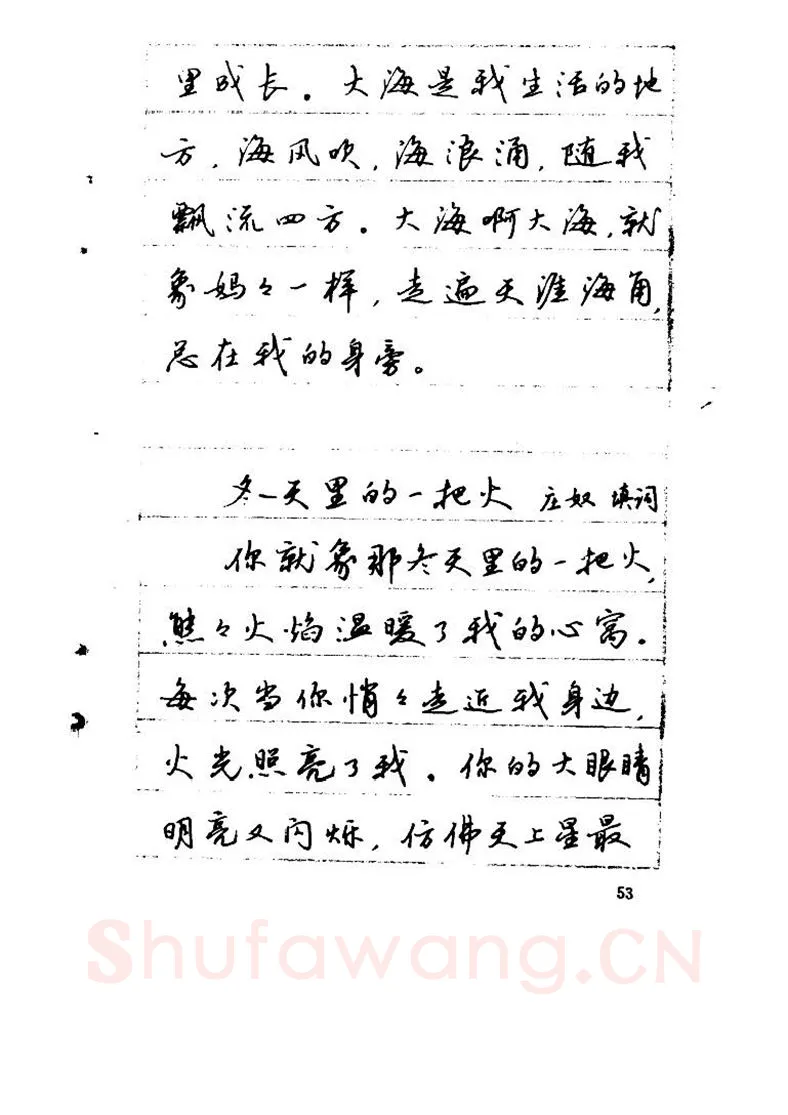 里成长。大海是我生活的地
方，海风吹，海浪涌，随我
飘流四方。大海啊大海，就
象妈々一样，走遍天涯海角，
总在我的身旁。
冬天里的一把火 庄奴 填词
你就象那冬天里的一把火，
熊々火焰温暖了我的心窝。
每次当你悄々走近我身边，
火光照亮了我。你的大眼睛
明亮又闪烁，仿佛天上星最
53
Shufawang.CN